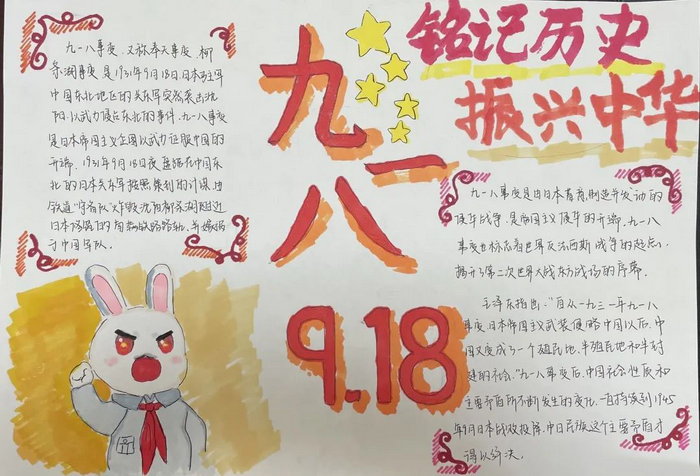 铭记历史
振兴中华
九一八
9.18
九一八事变,又称奉天事变、柳
条湖事变,是1931年9月18日日本驻军
中国东北地区的关东军突然袭击沈
阳,以武力侵占东北的事件.九一八事变
是日本帝国主义企图以武力征服中国的
开端,1931年9月18日夜,盘踞在中国东
北的日本关东军按照策划的计谋,由
铁道"守备队"炸毁沈阳柳条湖附近
日本修筑的南满铁路路轨,并嫁祸
于中国军队.
九一八事变是由日本蓄意制造并发动的
侵华战争,是帝国主义侵华的开端.九一八
事变也标志着世界反法西斯战争的起点,
揭开了第二次世界大战东方战场的序幕.
毛泽东指出:"自从一九三一年九一八
事变日本帝国主义武装侵略中国以后,中
国又变成了一个殖民地、半殖民地和半封
建的社会."九一八事变后,中国社会性质和
主要矛盾所不断发生的变化,一直持续到1945
年9月日本战败投降,中日民族这个主要矛盾才
得以解决.